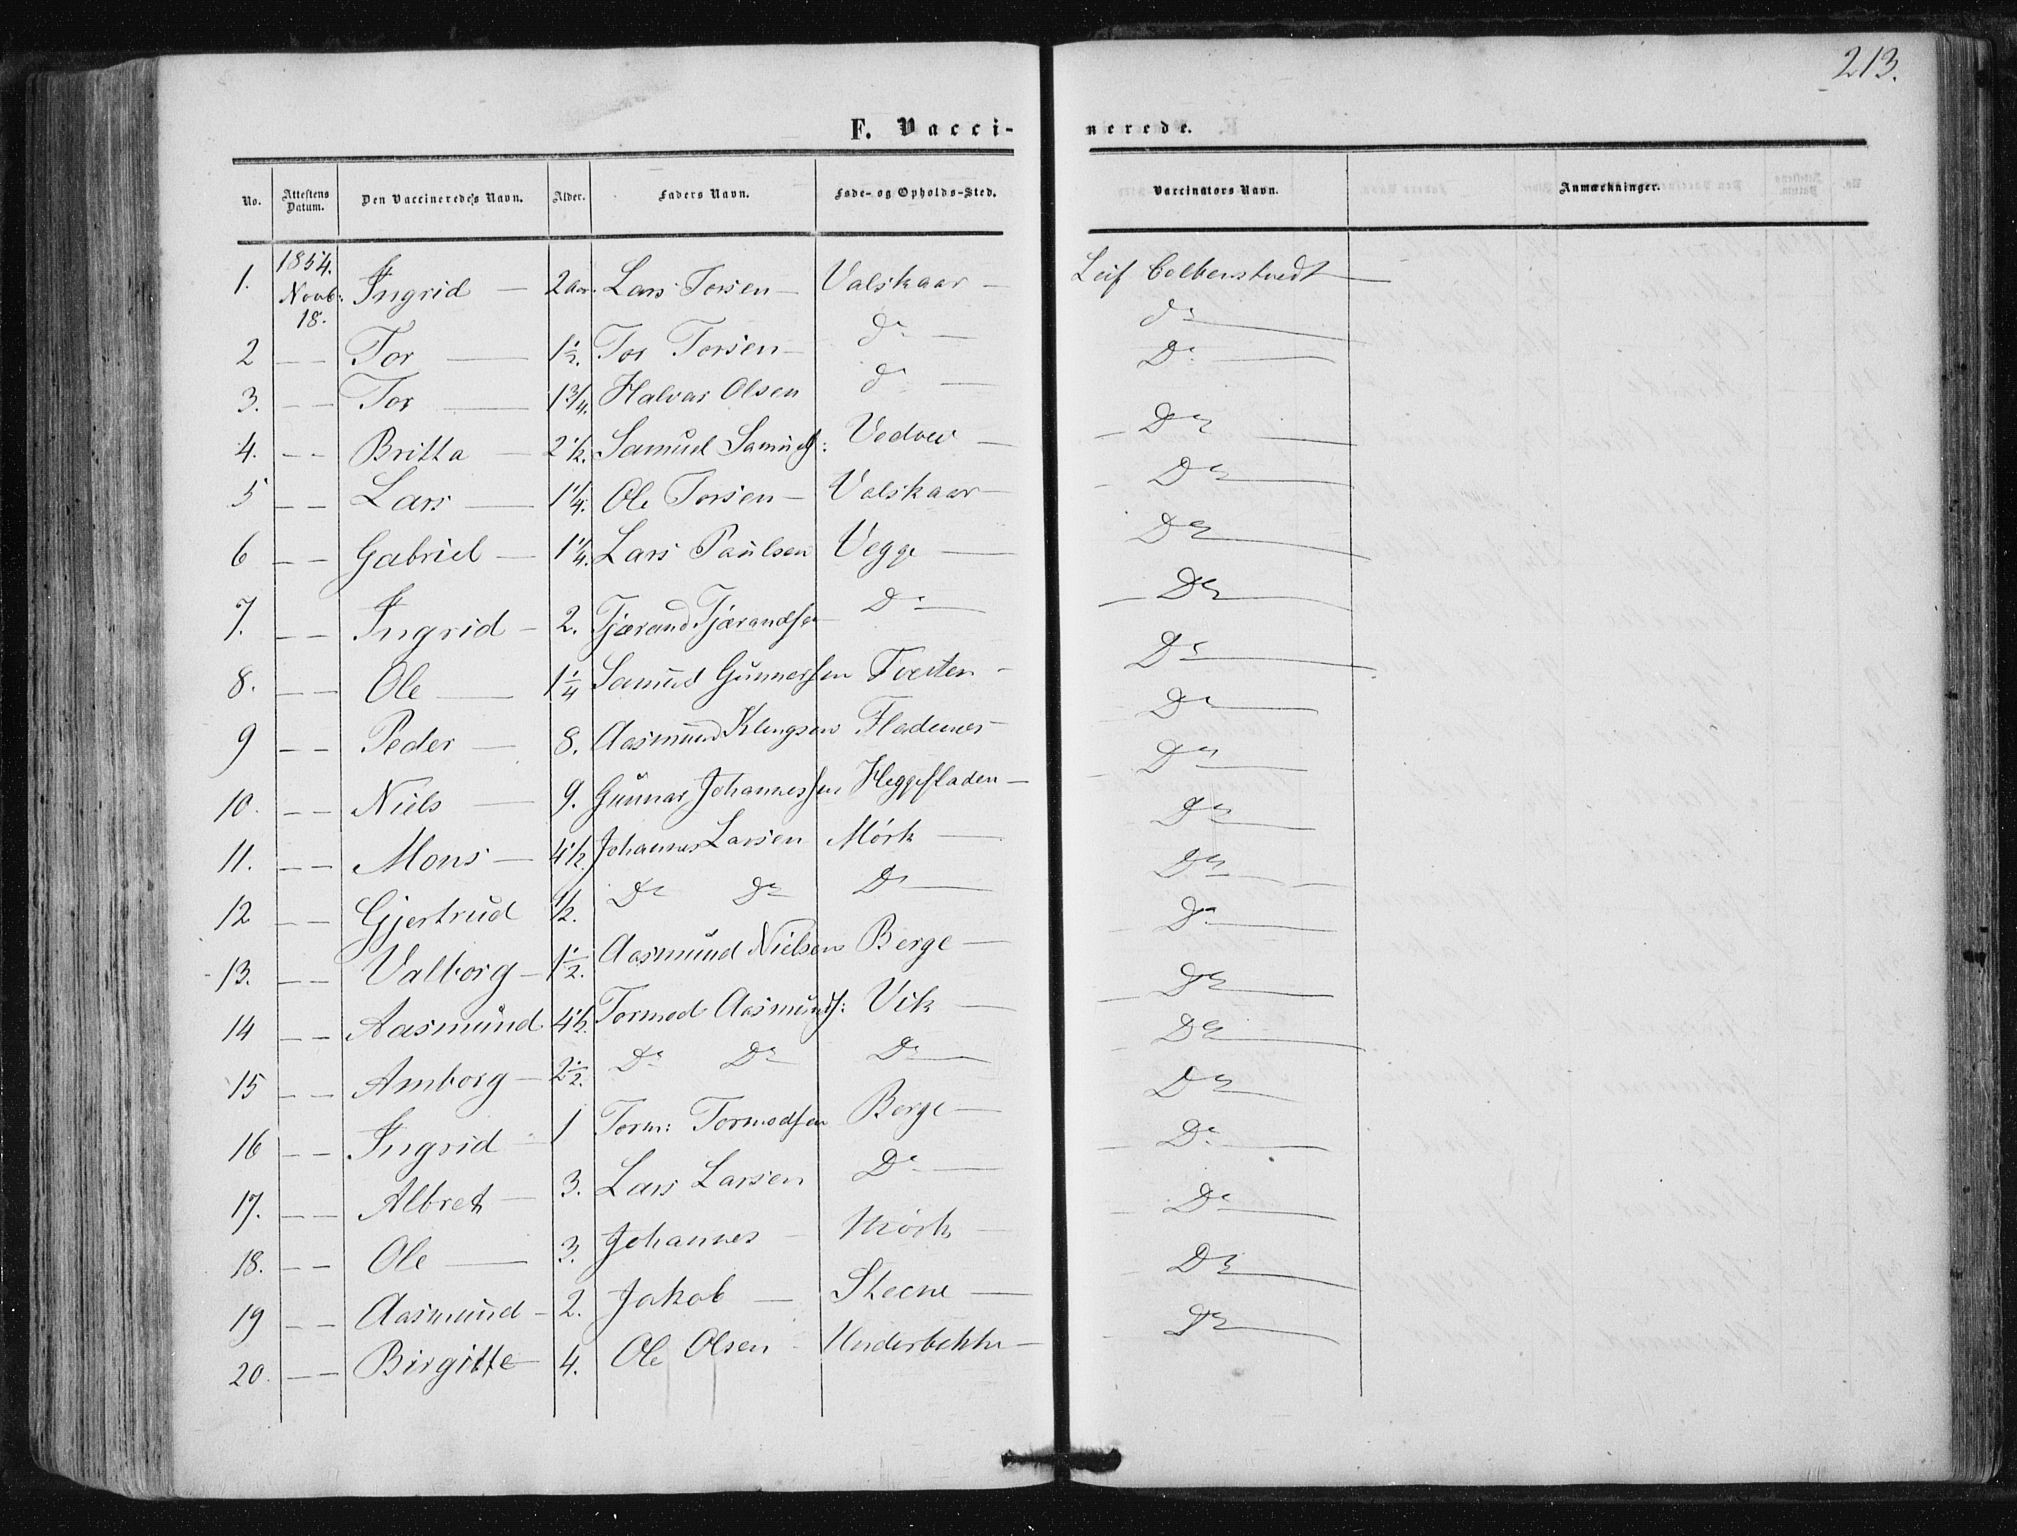 213.
F. Vacci-nerede.
No. Attestens Datum. Den Vaccineredes Navn. Alder. Faders Navn. Føde- og Opholds-Sted. Vaccinators Navn. Anmærkninger.
1. 1854. Novb: 18. Ingrid — 2 Aar. Lars Torsen — Valskaar — Leif
2 — — Tor — 1 1/2. Tor Torsen — do — do —
3. — — Tor — 1 3/4. Halvar Olsen do — Do —
4. — — Britta — 2 1/2. Samuel Samuels: — Do —
5 — — Lars — 1 1/4. Ole Torsen — Valskaar — Do —
6 — — Gabriel — 1 1/4. Lars Paulsen Vegge — Do —
7. — — Ingrid — 2. Tjærand Tjærandsen Do — Do —
8. — — Ole — 1 1/4 Samuel Gunnarsen Tveiten — Do —
9 — — Peder — 8. Aasmund Klengsen Fladenes — Do —
10. — — Niels — 9. Gunnar Johannessen Heggefladen — Do —
11. — — Mons — 4 1/2. Johannes Larsen Mørk — Do —
12 — — Gjertrud 1/2. Do Do Do — Do —
13. — — Valborg — 1 1/2. Aasmund Nielsen Berge — Do —
14 — — Aasmund 4 1/2. Tormod Aasmunds: Vik — Do —
15 — — Amborg — 2 1/2. Do Do Do — Do —
16 — — Ingrid — 1 Torm: Tormodsen Berge — Do —
17. — — Albret — 3. Lars Larsen Do — Do —
18. — — Ole — 3. Johannes — Mørk — Do —
19 — — Aasmund — 2. Jakob — Steene — Do —
20. — — Birgitte — 4. Ole Olsen — Underbakke — Do —